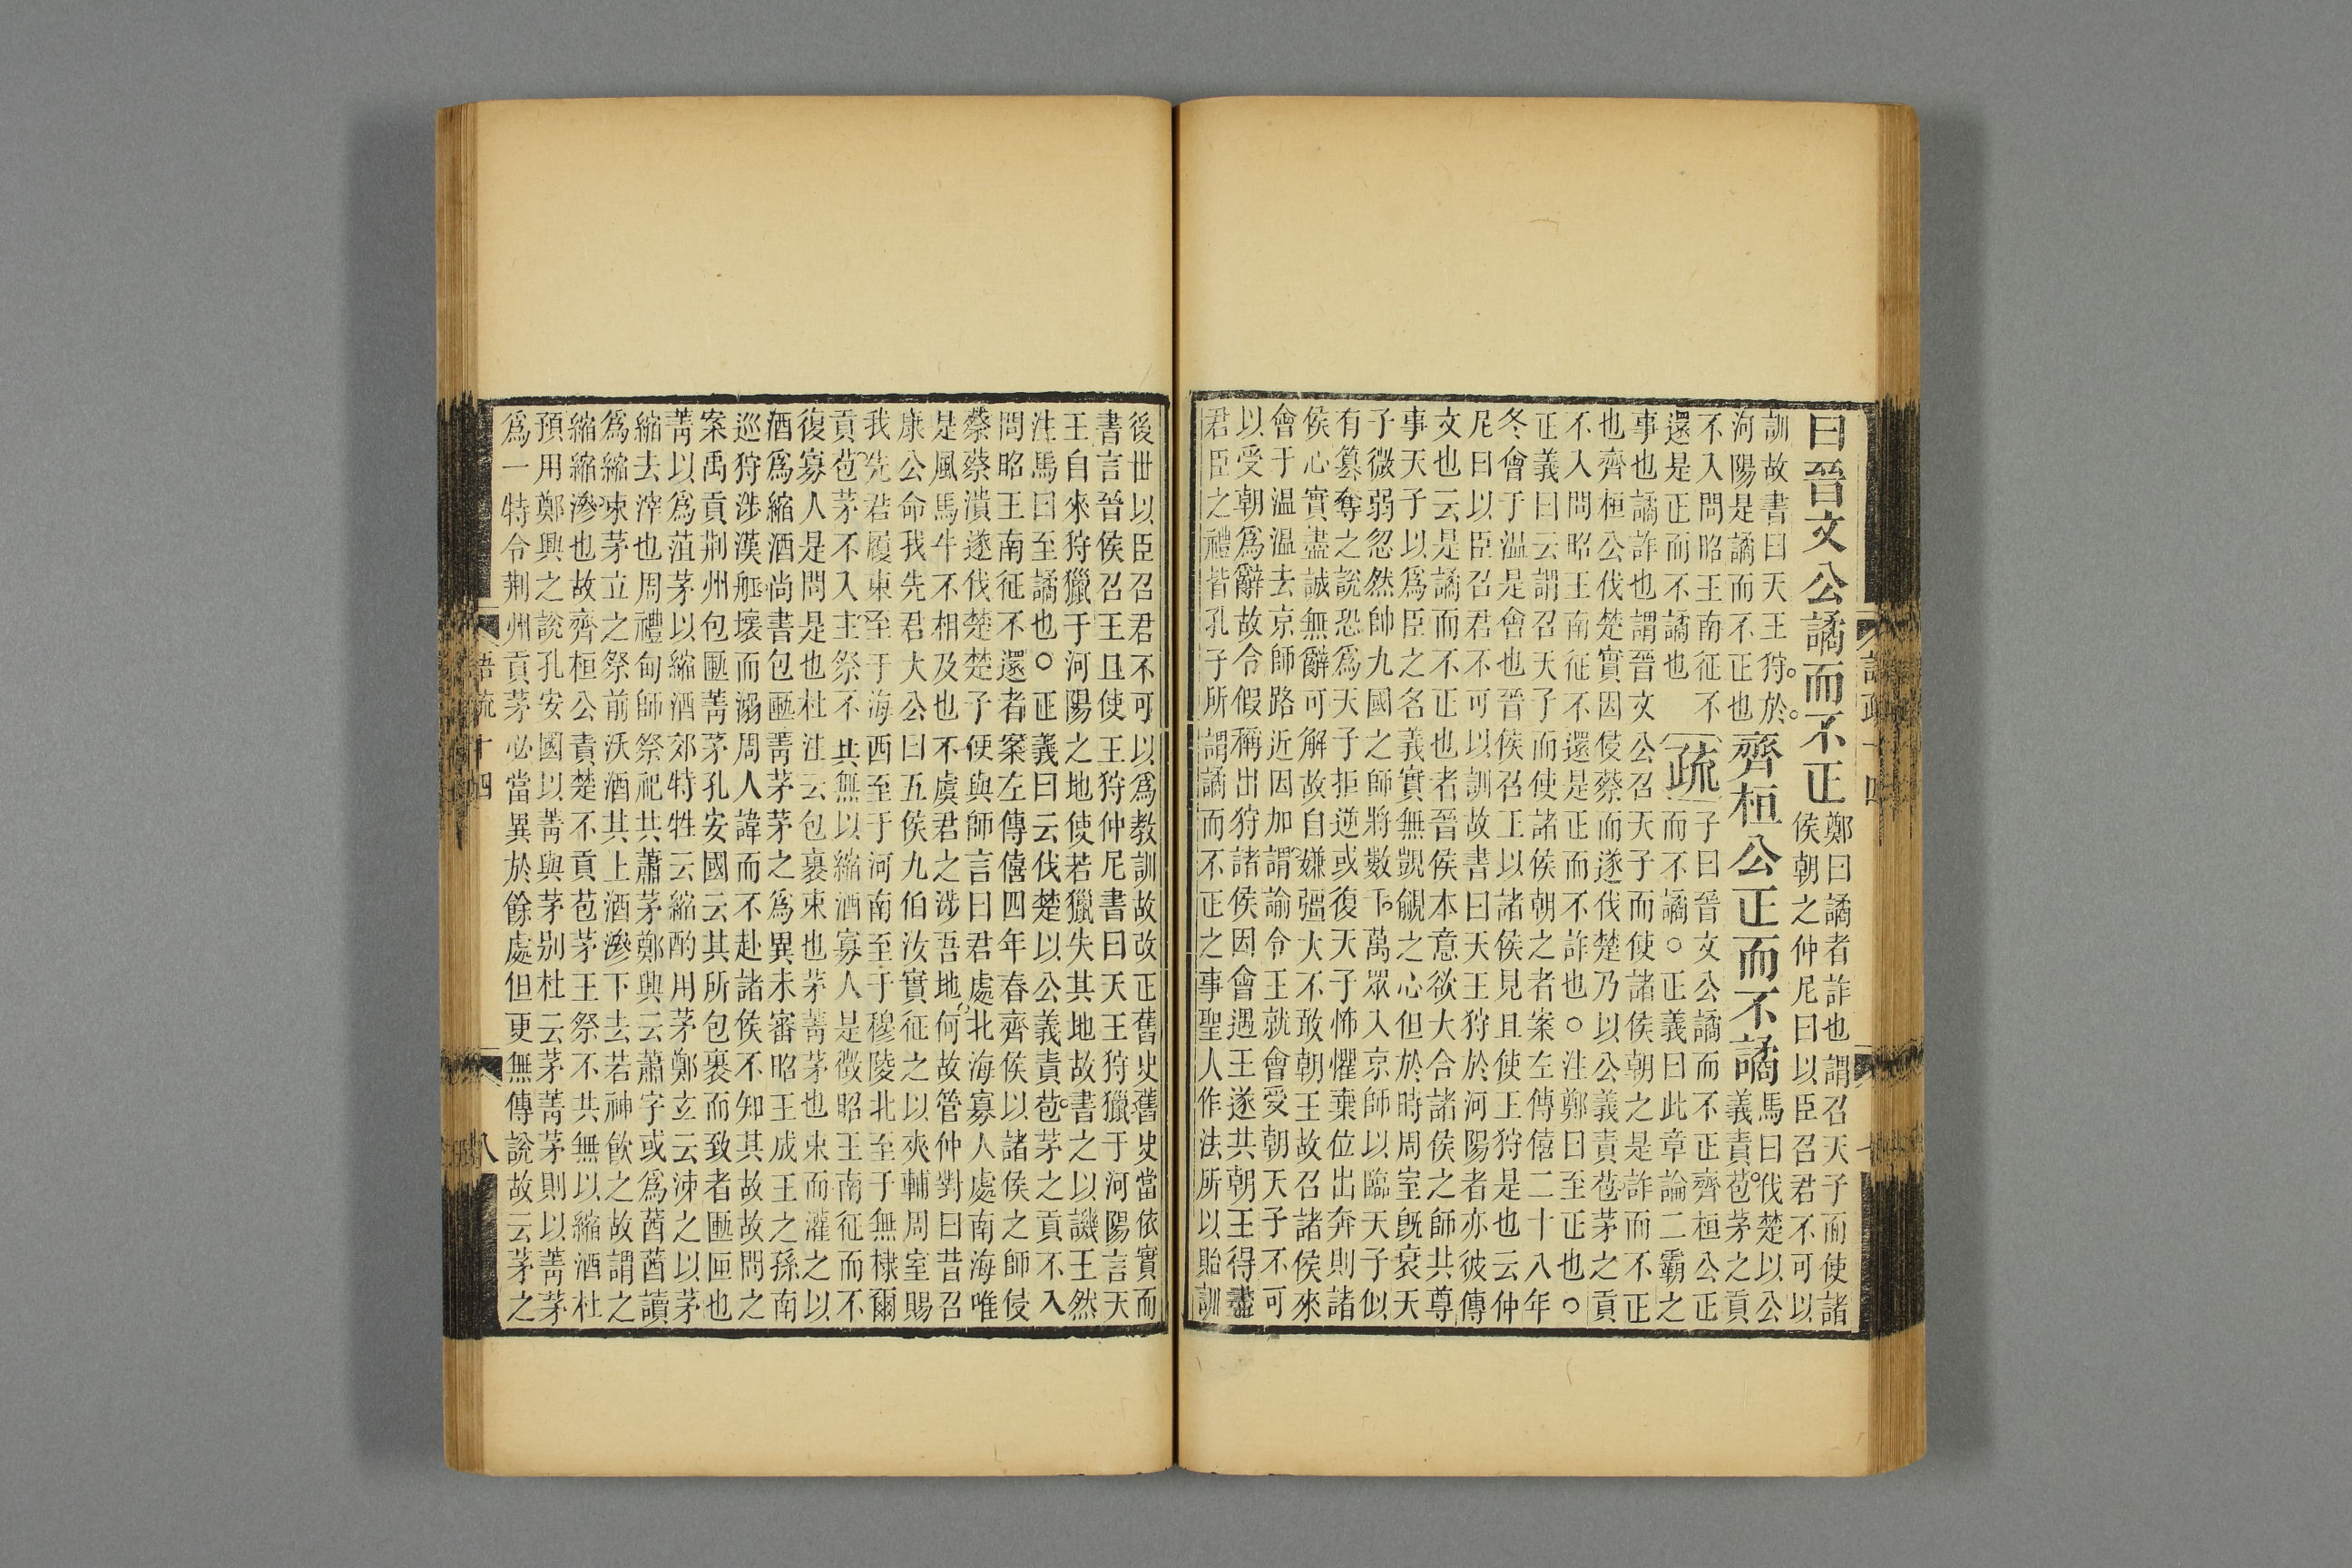 曰晉文公譎而不正
鄭曰譎者詐也謂召天子而使諸
侯朝之仲尼曰以臣召君不可以
訓故書曰天王狩於
河陽是譎而不正也
齊桓公正而不譎
馬曰伐楚以公
義責苞茅之貢
不入問昭王南征不
還是正而不譎也
疏
子曰晉文公譎而不正齊桓公正
而不譎○正義曰此章論二霸之
事也譎詐也謂晉文公召天子而使諸侯朝之是詐而不正
也齊桓公伐楚實因侵蔡而遂伐楚乃以公義責苞茅之貢
不入問昭王南征不還是正而不詐也○注鄭曰至正也○
正義曰云謂召天子而使諸侯朝之者案左傳僖二十八年
冬會于溫是會也晉侯召王以諸侯見且使王狩是也云仲
尼曰以臣召君不可以訓故書曰天王狩於河陽者亦彼傳
文也云是譎而不正也者晉侯本意欲大合諸侯之師共尊
事天子以爲臣之名義實無覬覦之心但於時周室旣衰天
子微弱忽然帥九國之師將數千萬眾入京師以臨天子似
有篡奪之說恐爲天子拒逆或復天子怖懼棄位出奔則諸
侯心實盡誠無辭可解故自嫌彊大不敢朝王故召諸侯來
會于温温去京師路近因加謂諭令王就會受朝天子不可
以受朝爲辭故令假稱出狩諸侯因會遇王遂共朝王得盡
君臣之禮皆孔子所謂譎而不正之事聖人作法所以貽訓
後世以臣召君不可以爲教訓故改正舊史舊史當依實而
書言晉侯召王且使王狩仲尼書曰天王狩獵于河陽言天
王自來狩獵于河陽之地使若獵失其地故書之以譏王然
注馬曰至譎也○正義曰云伐楚以公義責苞茅之貢不入
問昭王南征不還者案左傳僖四年春齊侯以諸侯之師侵
蔡蔡潰遂伐楚楚子使與師言曰君處北海寡人處南海唯
是風馬牛不相及也不虞君之涉吾地何故管仲對曰昔召
康公命我先君大公曰五侯九伯汝實征之以夾輔周室賜
我先君履東至于海西至于河南至于穆陵北至于無棣爾
貢苞茅不入主祭不共無以縮酒寡人是徵昭王南征而不
復寡人是問是也杜注云包裹束也茅菁茅也束而灌之以
酒爲縮酒尚書包匭菁茅茅之爲異未審昭王成王之孫南
巡狩涉漢舩壞而溺周人諱而不赴諸侯不知其故故問之
案禹貢荆州包匭菁茅孔安國云其所包裹而致者匭匣也
菁以爲菹茅以縮酒郊特牲云縮酌用茅鄭玄云泲之以茅
縮去滓也周禮甸師祭祀共蕭茅鄭興云蕭字或爲莤莤讀
爲縮束茅立之祭前沃酒其上酒滲下去若神飮之故謂之
縮縮滲也故齊桓公責楚不貢苞茅王祭不共無以縮酒杜
預用鄭興之說孔安國以菁與茅別杜云茅菁茅則以菁茅
爲一特令荆州貢茅必當異於餘處但更無傳說故云茅之
語疏十四
八